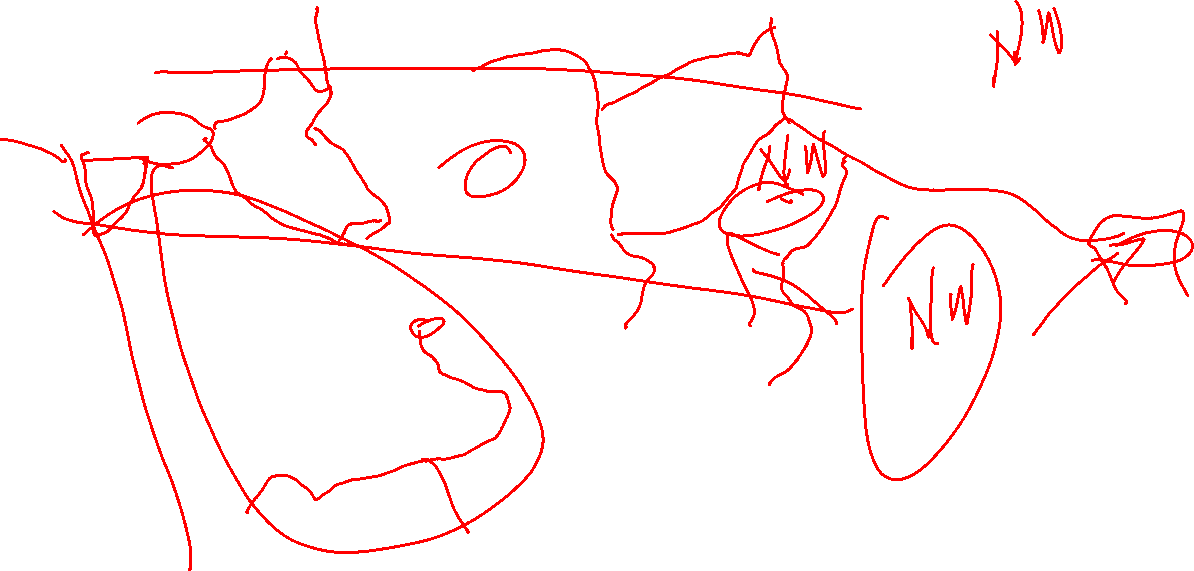 NW
NW
NW